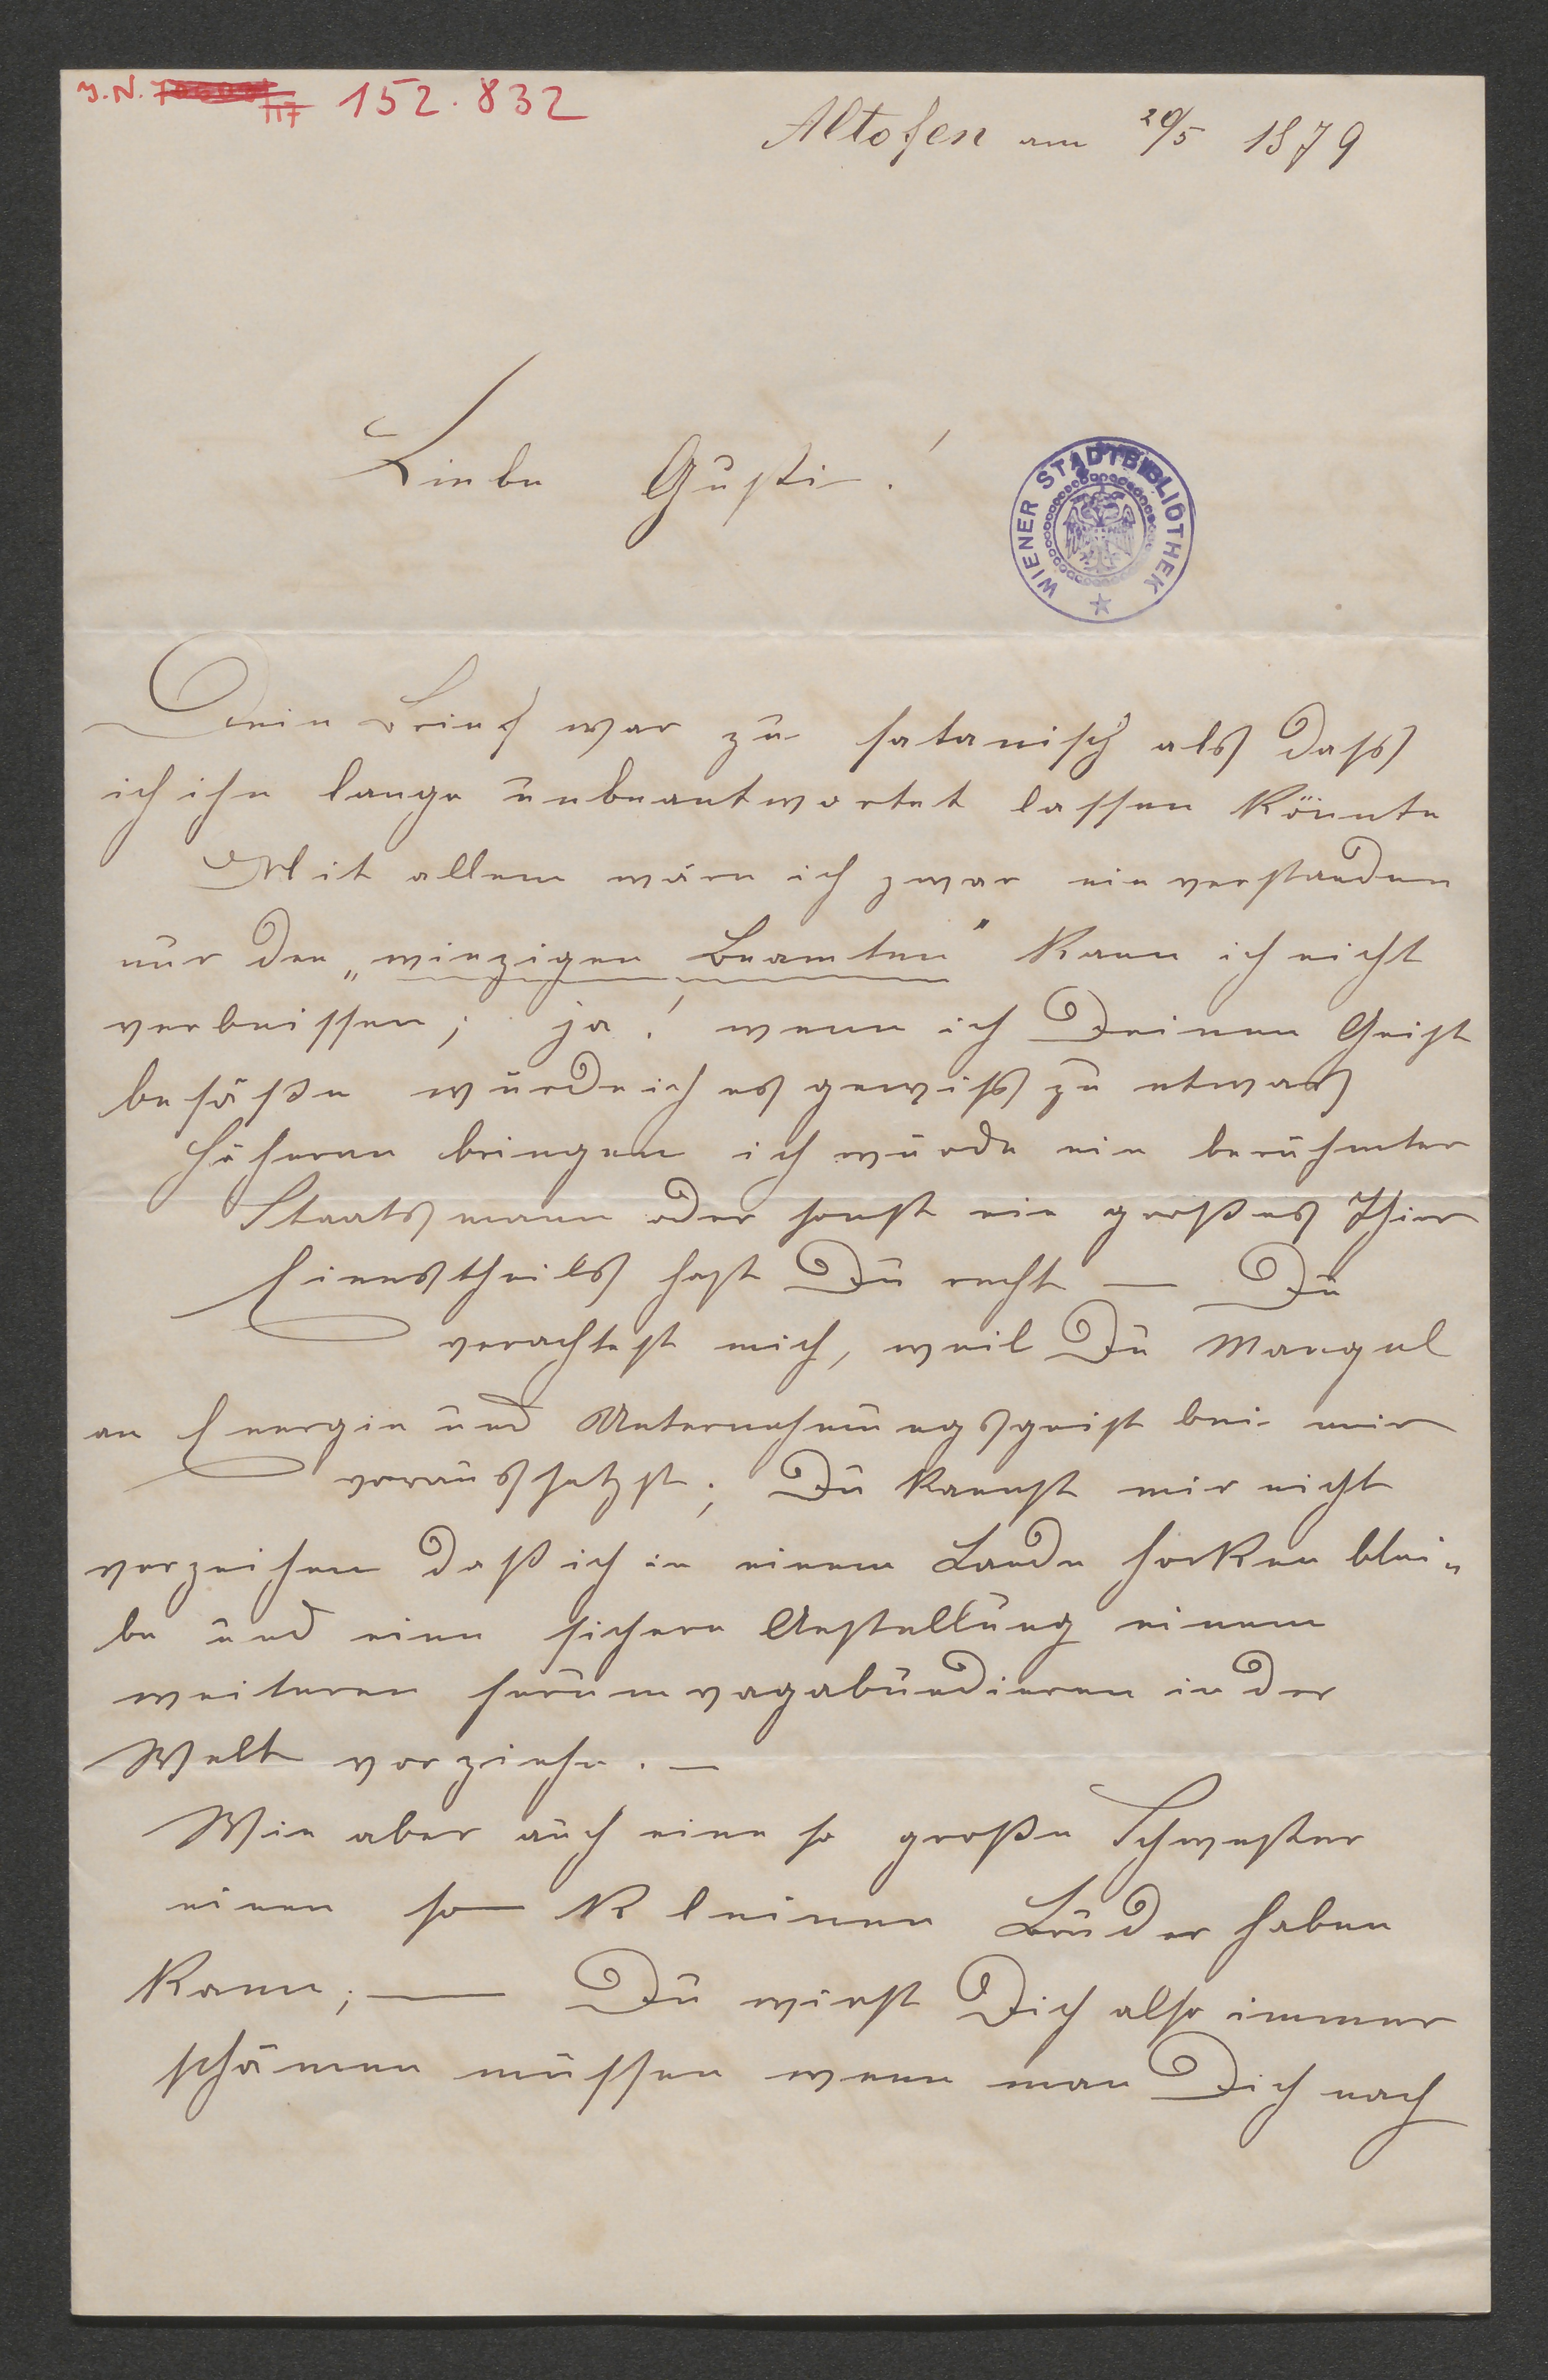 J.N. 152.832
Altofen am 20/5 1879
Liebe Gusti!
WIENER STADTBIBLIOTHEK
Dein Brief war zu satanisch als dass
ich ihn lange unbeantwortet lassen könnte
Mit allem wäre ich zwar einverstanden
nur den „winzigen Beamten" kann ich nicht
verbeissen; ja! wenn ich Deinen Geist
besäße würde ich es gewiß zu etwas
höheren bringen ich würde ein berühmter
Staatsmann oder sonst ein großes Thier
Einestheils hast Du recht — Du
verachtest mich, weil Du Mangel
an Energie und Unternehmungsgeist bei mir
voraussetzst; Du kannst mir nicht
verzeihen daß ich in einem Lande hocken blei„
be und eine sichere Anstellung einem
weiteren herumvagabundieren in der
Welt vorziehe. —
Wie aber auch eine so große Schwester
einen so kleinen Bruder haben
kann; — Du wirst Dich also immer
schämen müssen wenn man Dich nach